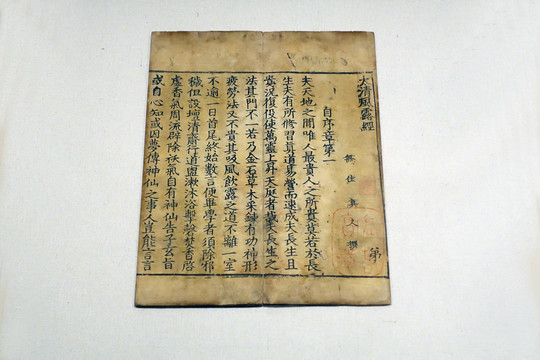 太清風露經
第
無住真人撰
自序章第一
夫天地之間唯人最貴人之所貴莫若於長
生夫有所修習道易營而速成夫長生且
況復役使萬靈上昇天庭者哉夫長生之
法其門不一若乃金石草木采鍊有功神形
疲勞法又不貴其吸風飲露之道不離一室
不過一日首尾終始數言便畢學者須除邪
穢但設壇清齋行道盥漱沐浴擊磬焚香啓
虛香氣周流辟除祅氣自有神仙告子玄旨
或自心知或因夢傳神仙之事人豈能言言